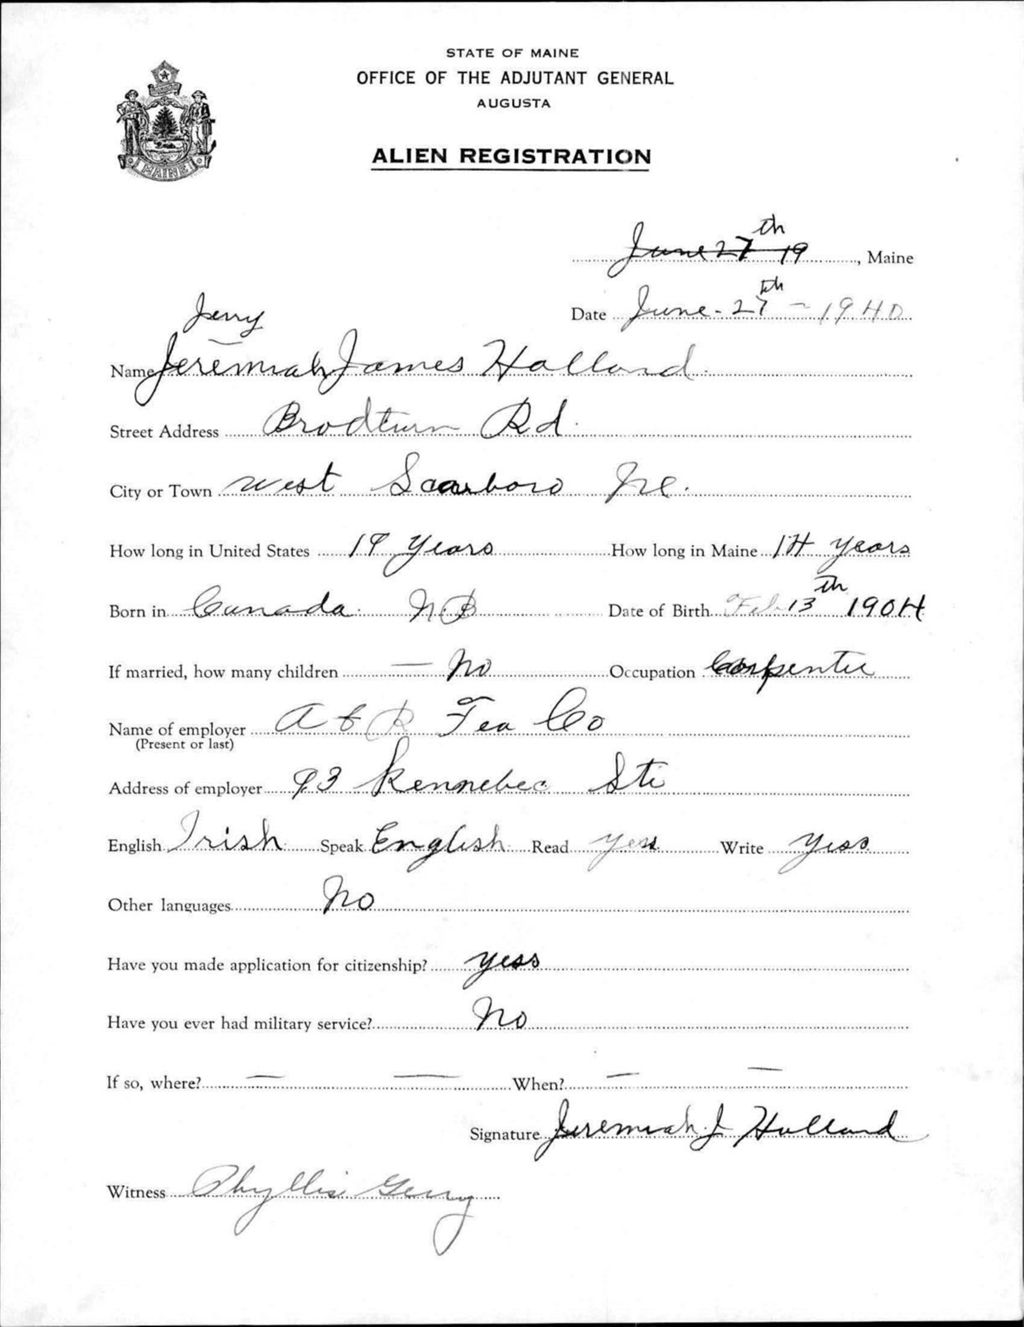 STATE OF MAINE
OFFICE OF THE ADJUTANT GENERAL
AUGUSTA
MAINE
ALIEN REGISTRATION
June 27th 19, Maine
Date June - 27th - 1940
Jerry
Name Jeremiah James Holland.
Street Address Brodturn Rd.
City or Town west Scarboro Me.
How long in United States years How long in Maine 14 years
Born in Canada. NB Date of Birth Feb 13th 1904
If married, how many children — No Occupation Carpenter
Name of employer A & P Tea Co
(Present or last)
Address of employer 93 Kennebec St
English Irish Speak English Read yess Write yess
Other languages No
Have you made application for citizenship? yess
Have you ever had military service? No
If so, where? — — When? — —
Signature Jeremiah J Holland
Witness Phyllis Gerry